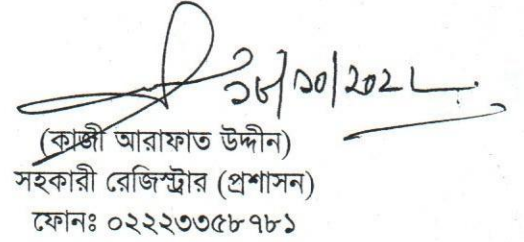 ১৮/১০/২০২২
(কাজী আরাফাত উদ্দীন)
সহকারী রেজিস্ট্রার (প্রশাসন)
ফোনঃ ০২২২৩৩৫৮৭৮১